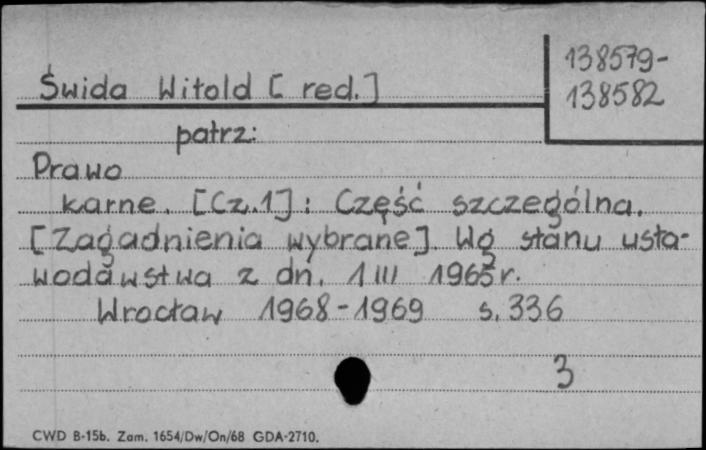 138579-
138582
Świda Witold [ red.]
patrz:
Prawo
karne. [Cz.1]: Część szczególna.
[Zagadnienia wybrane]. Wg stanu usta-
wodawstwa z dn. 1 III 1965r.
Wrocław 1968-1969 s. 336
3
CWD B-15b. Zam. 1654/Dw/On/68 GDA-2710.